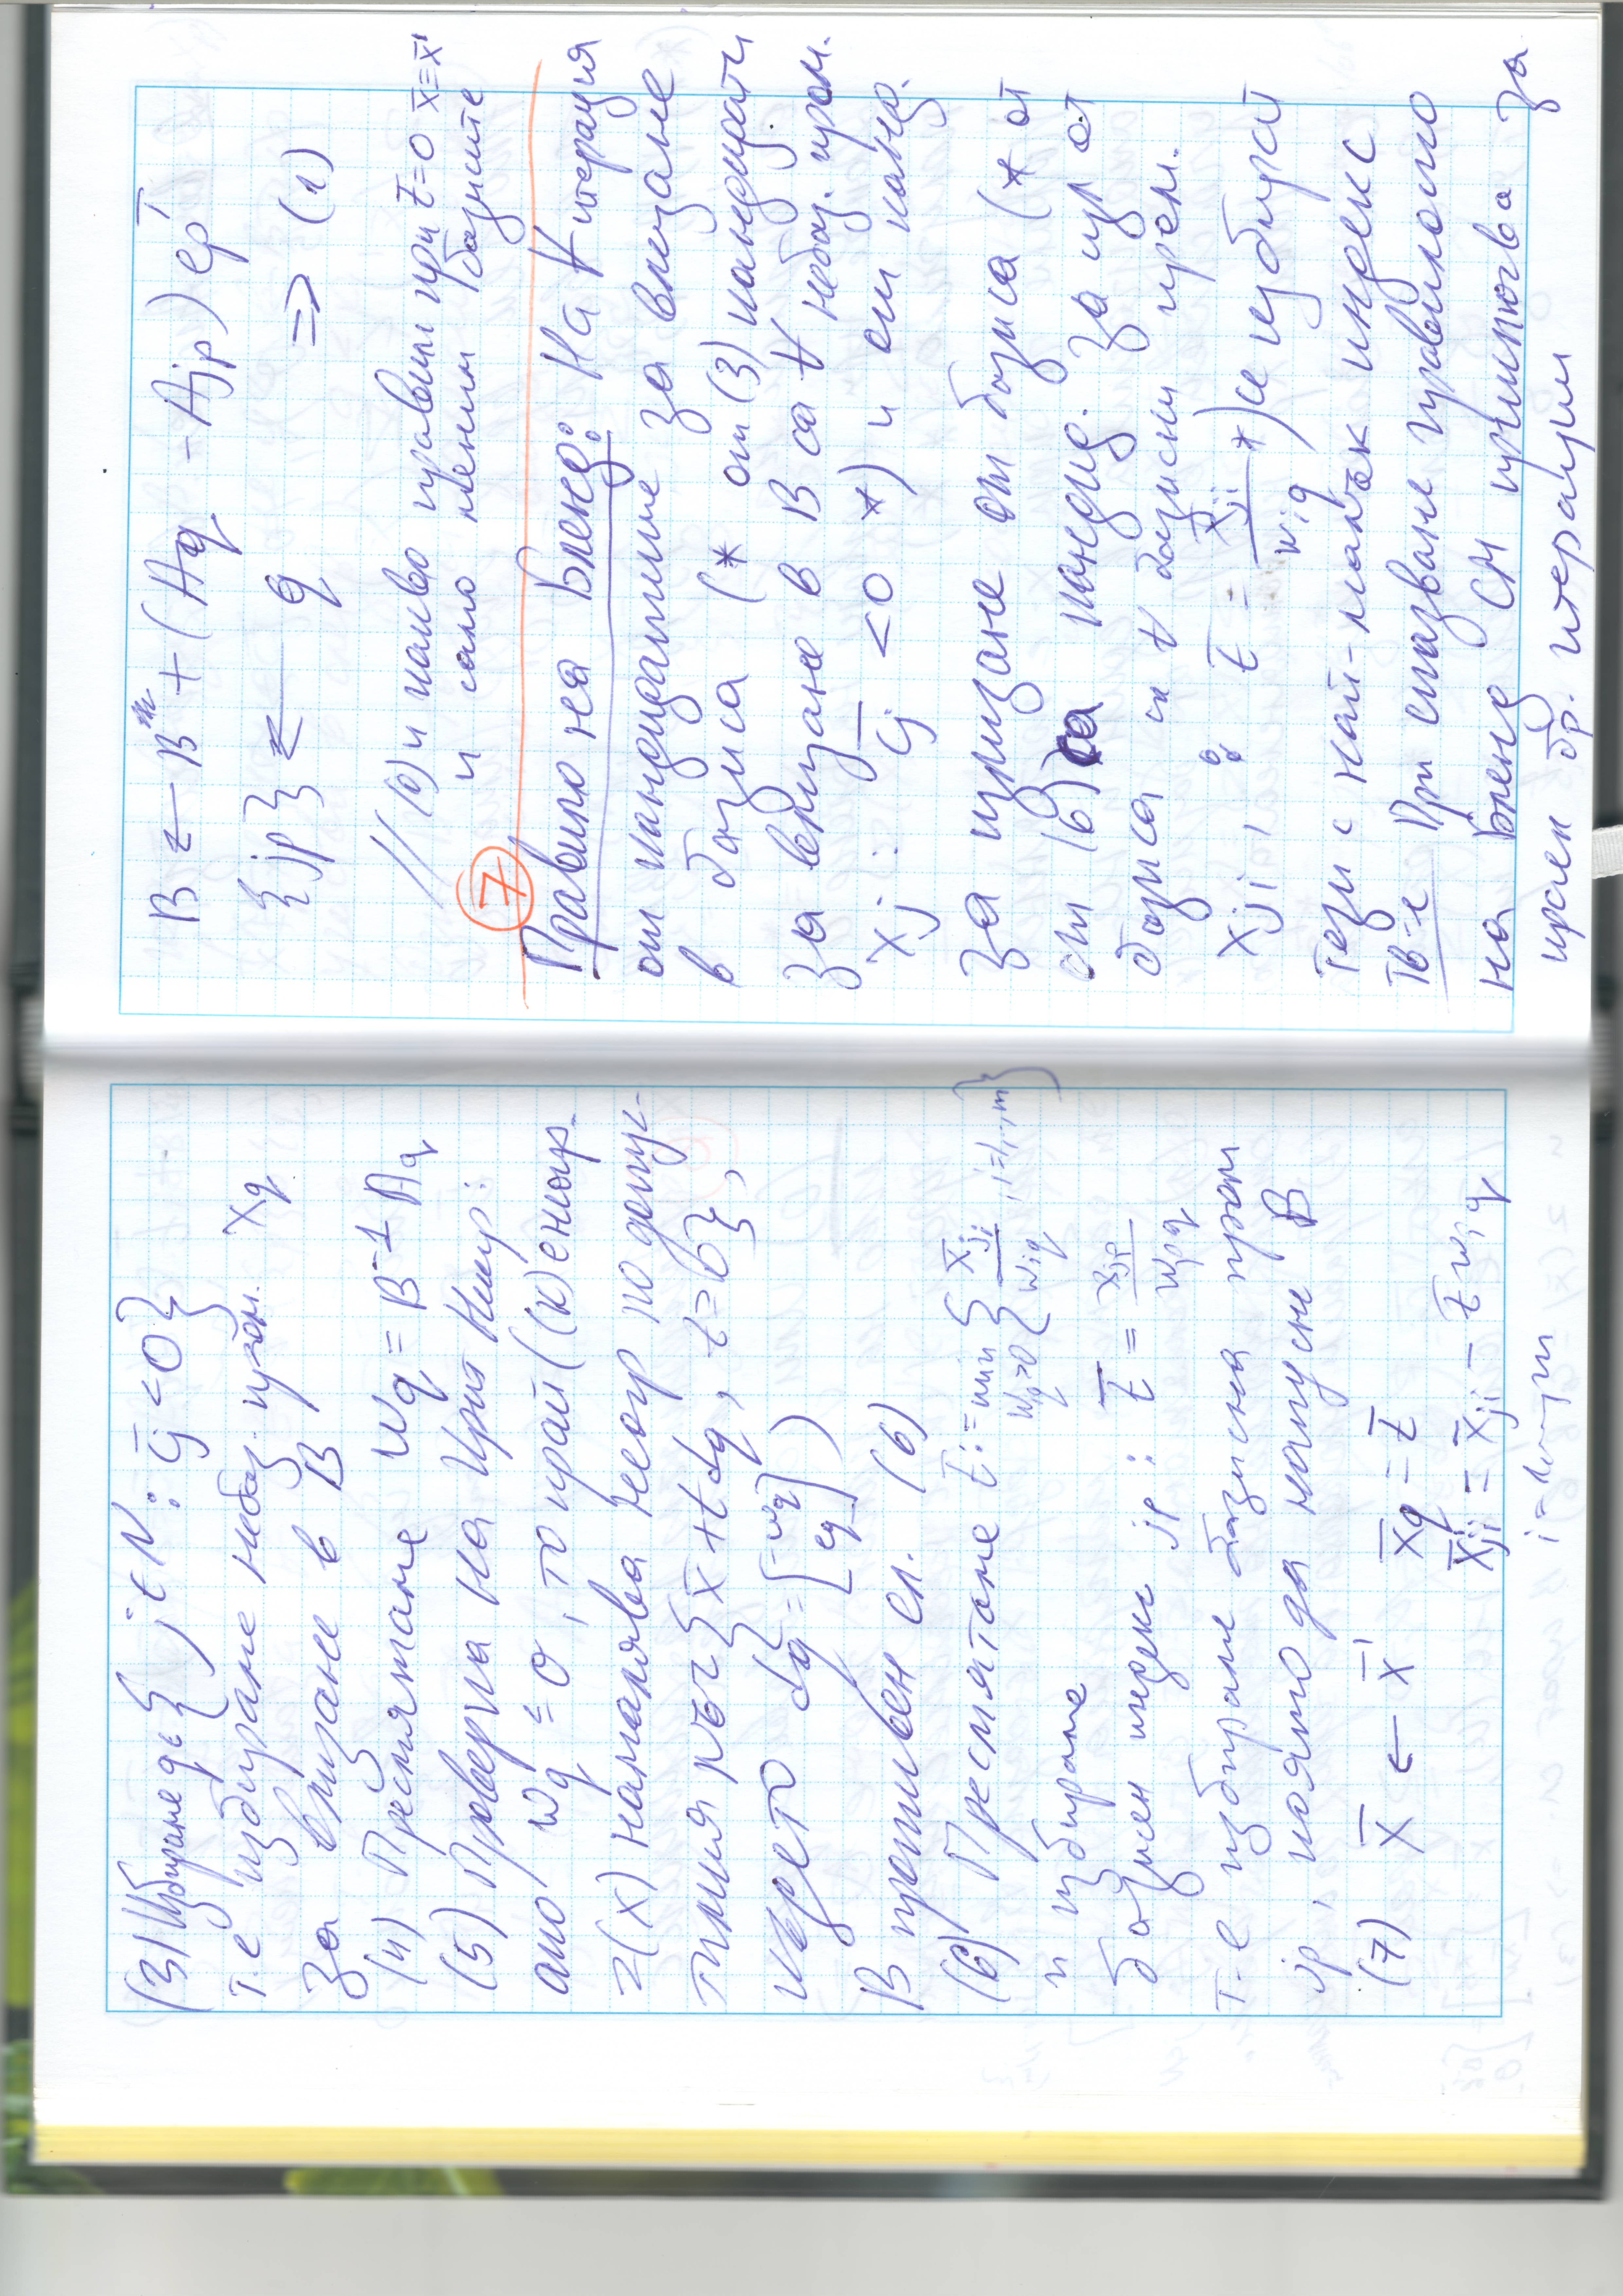 (3) Избиране q ∈ { j ∈ N : c̄j < 0 }
т.е избиране небаз. пром. xq
за влизане в B
(4) Пресмятане Wq = B⁻¹ Aq
(5) Проверка на Крит Неогр:
ако wq ≤ 0, то край ((K) е неогр.
z(x) намалява неогр по допус-
тимия ръб { x̄ + t dq, t ≥ 0 },
където dq = [ -wq eq ] )
В противен сл. (6)
(6) Пресмятане t̄ := min wiq>0 { x̄ji / wiq , i=1,..,m }
и избиране
базисен индекс jp : t̄ = x̄jp / wpq
т.е избираме базисна пром
jp, която да напусне B
(7) x̄ ← x̄' x̄q = t̄
x̄ji = x̄ji - t̄ wiq
i = 1,..,m
B ← B + (Aq - Ajp) epᵀ
{jp} ← q => (1)
// (8) и какво правим при t̄=0 x̄=x̄'
и само меним базисите
(7)
Правило на Бленд: На ∀ итерация
от кандидатите за влизане
в базиса (* от (3) кандидати
за влизане в B са ∀ небаз. пром.
xj : c̄j < 0 *) и от канд.
за излизане от базиса (* от
от (6) са кандид. за изл от
базиса са ∀ базисни пром.
xji, : t̄ = x̄ji / wiq *) се избират
тези с най-малък индекс
Тв-е При спазване правилото
на Бленд СМ приключва за
краен бр. итерации